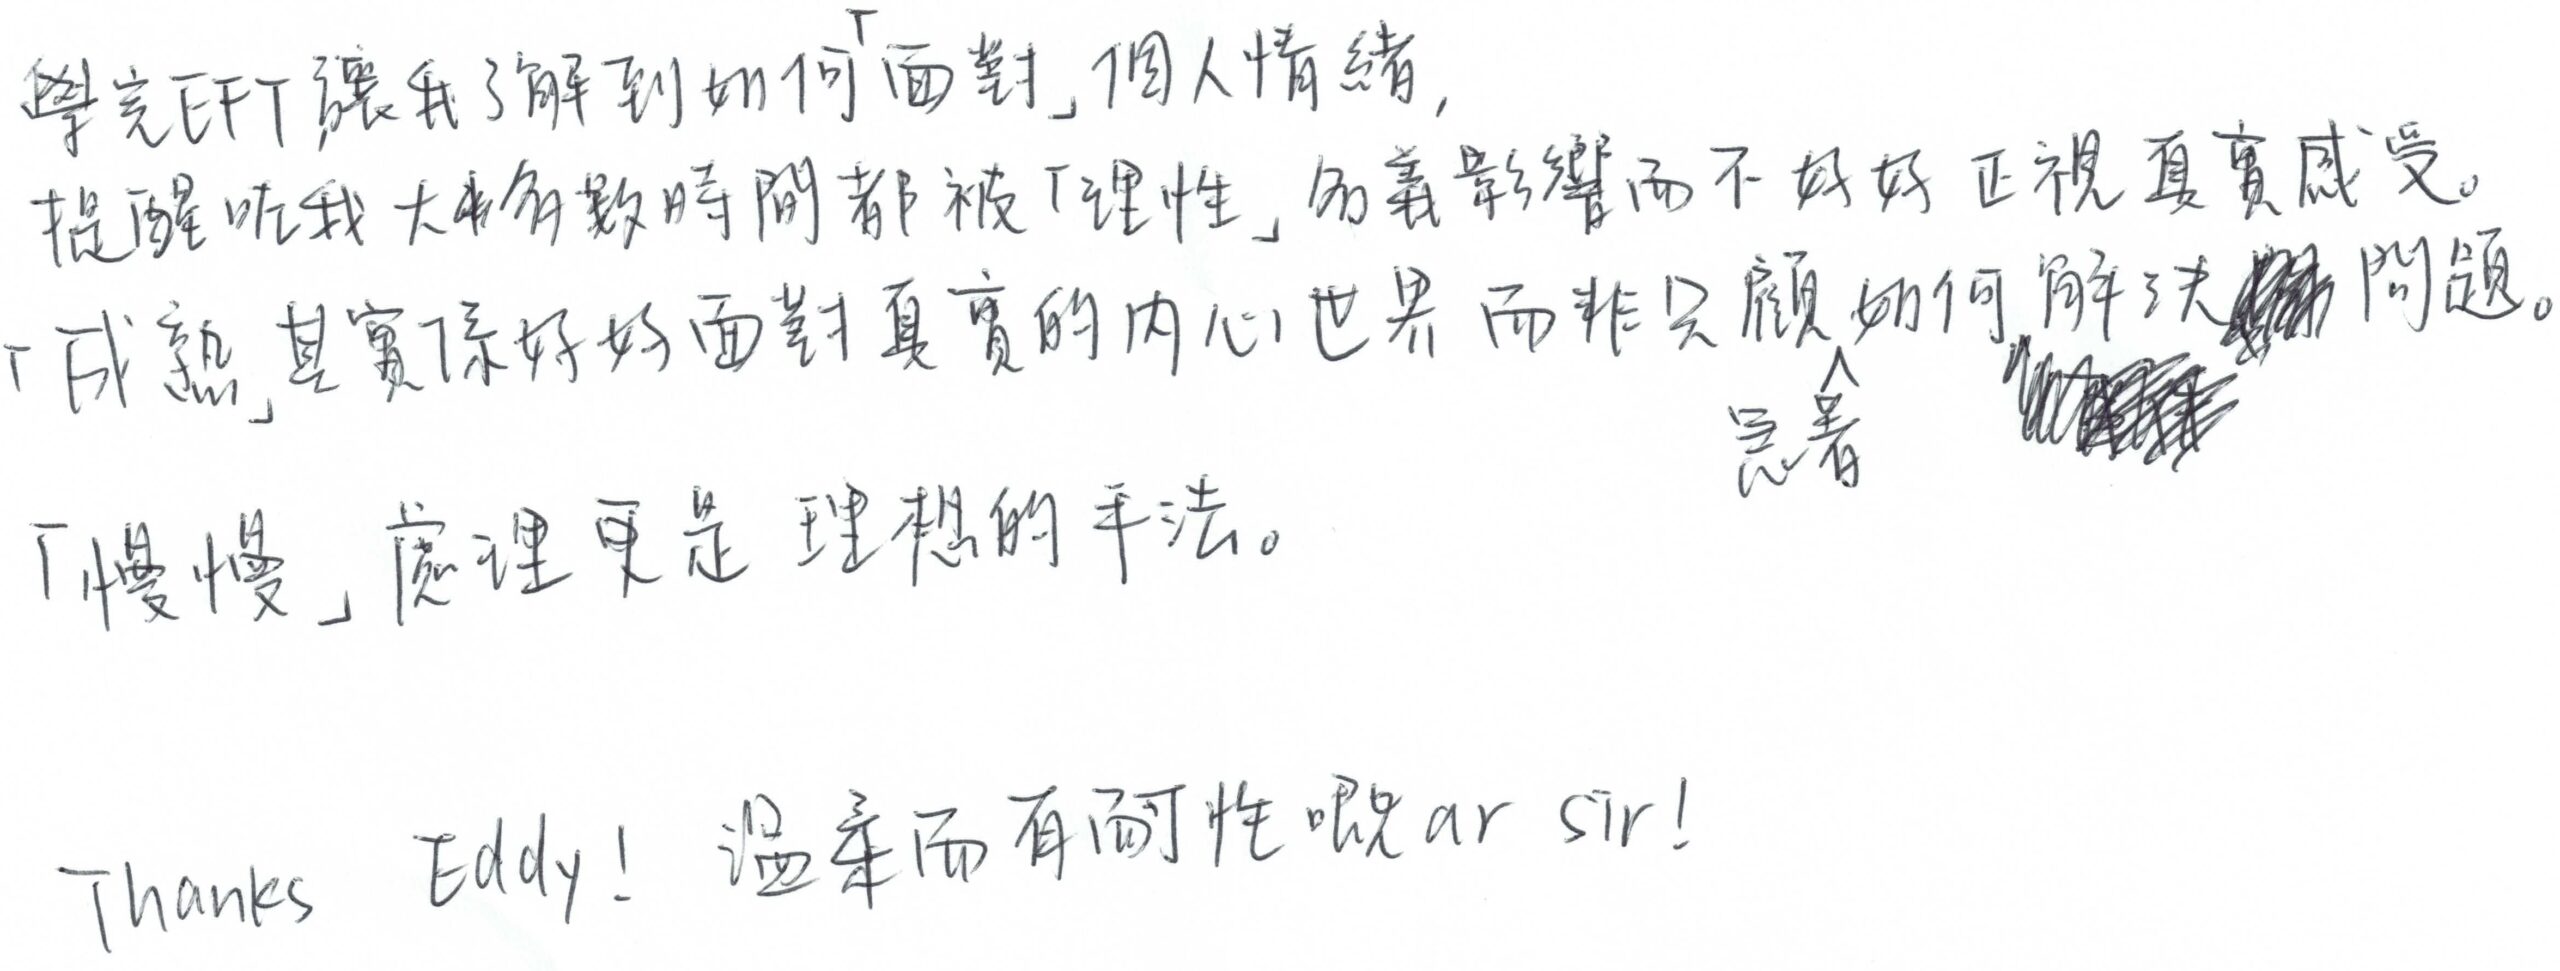 學完EFT讓我了解到如何「面對」個人情緒,
提醒咗我大多數時間都被「理性」名義影響而不好好正視真實感受。
「成熟」其實係好好面對真實的內心世界而非只顧急着如何解決問題。
「慢慢」處理更是理想的手法。
Thanks Eddy! 溫柔而有耐性嘅ar sir!